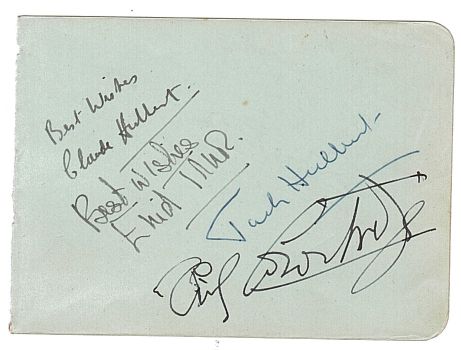 Best Wishes
Claude Hulbert.
Best Wishes
Enid Trevor.
Jack Hulbert.
Cicely Courtneidge